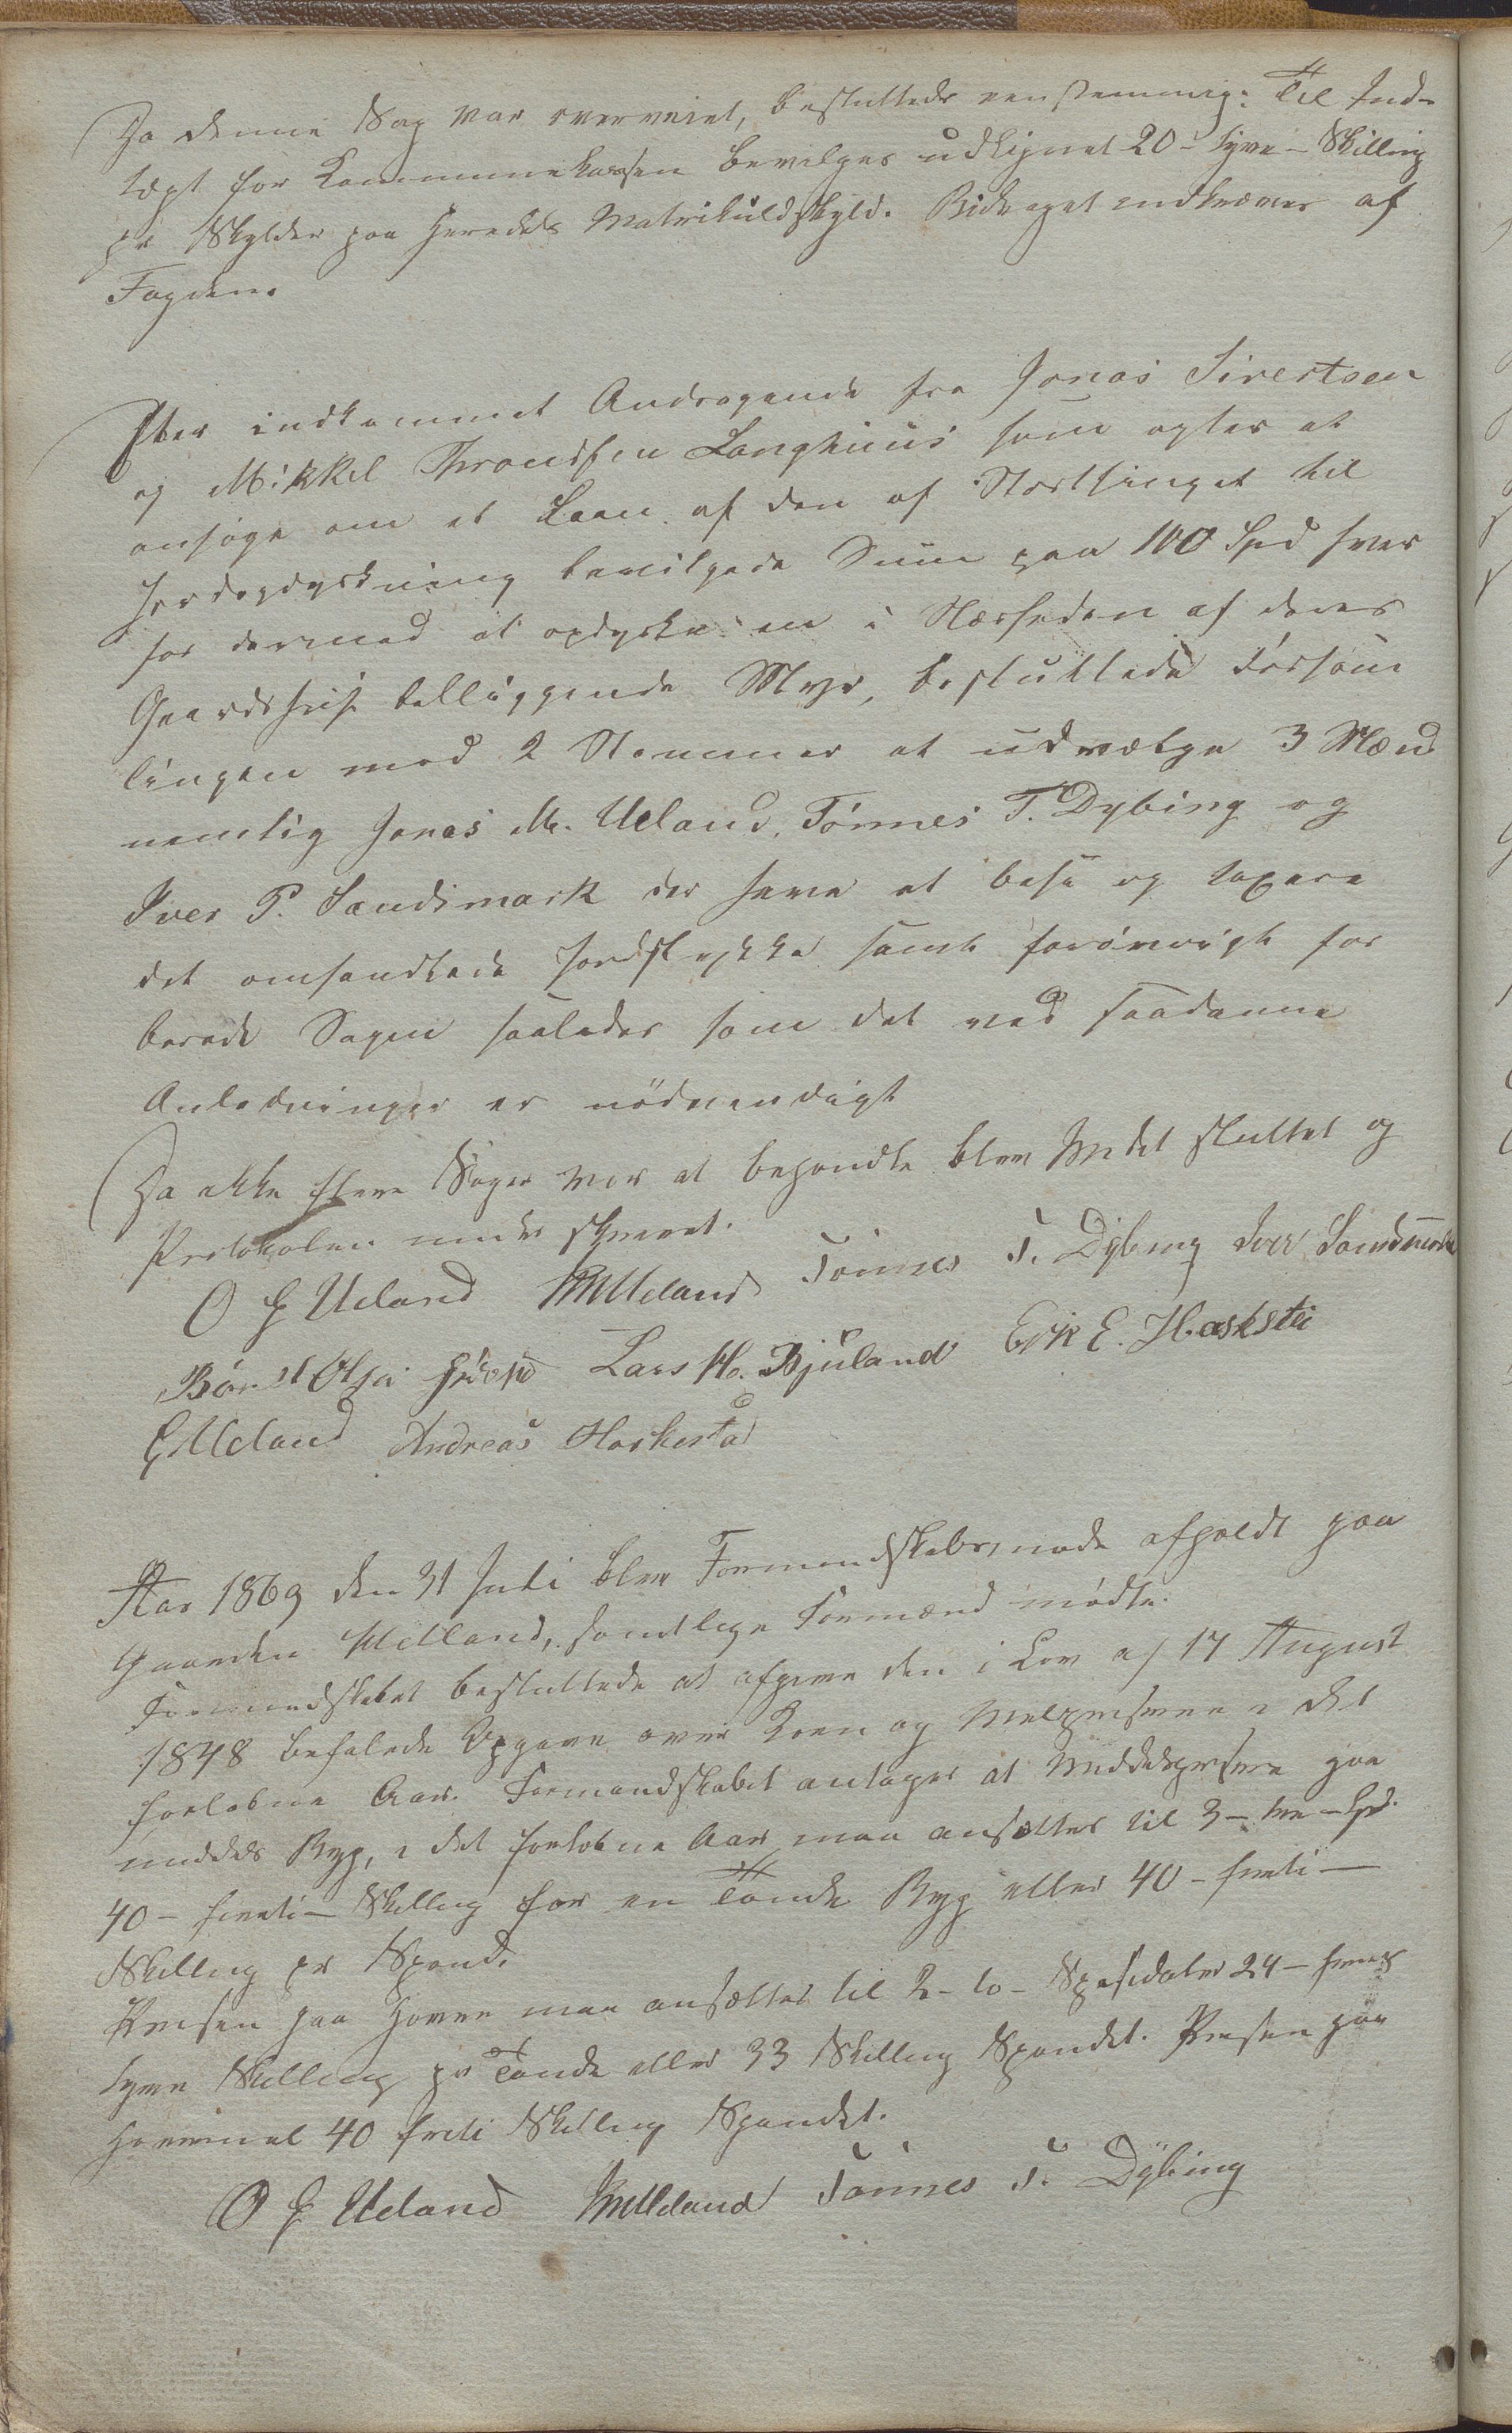 Da denne Sag var overveiet, besluttede eenstemmig: Til Ind-
tægt for Kommunekassen bevilges udlignet 20 - tyve - Skilling
pr Skylder paa Heredets Matrikulskyld. Bidraget indkræves af
Fogden.
Efter indkommet Andragende fra Jonas Sivertsen
og Mikkel Thronsen Langhuus som agter at
ansøge om et Laan af den af Storthinget til
Jordopdyrkning bevilgede Sum paa 100 Spd hver
for dermed at opdyrke en i Nærheden af deres
Gaardshuse belliggende Myr, besluttede Forsam
lingen med 2 Stemmer at udvælge 3 Mænd
nemlig Jonas M. Ueland, Tønnes T. Dybing og
Iver P. Sandsmark der have at bese og taxere
det omhandlede Jordstykke samt forøvrigt for
berede Sagen saaledes som det ved saadanne
Anledninger er nödvendigt
Da ikke flere Sager var at behandle blev Mødet sluttet og
Protokolen underskrevet.
O G Ueland JMUeland Tönnes T. Dybing Iver Sandsmark
Lars H. Bjuland Erik E. Haksti
GUeland Andreas Haskestad
Aar 1869 den 31 Juli blev Formandskabsmøde afholdt paa
Gaarden Ueland, samtlige Formænd mødte.
Formandskabet besluttede at afgive den i Lov af 17 August
1848 befalede Opgave over Korn og Melpriserne i det
forløbne Aar. Formandskabet antager at Middelprisen paa
middels Byg, i det forløbne Aar maa ansættes til 3 - tre - Spd.
40 - firti - Skilling for en Tønde Byg eller 40 - firti -
Skilling pr Spand.
Prisen paa Havre maa ansættes til 2 - to - Spesidaler 24 - fire og
tyve Skilling pr Tønde eller 33 Skilling Spandet. Prisen paa
Havremel 40 firti Skilling Spandet.
O G Ueland JMUeland Tönnes T. Dybing